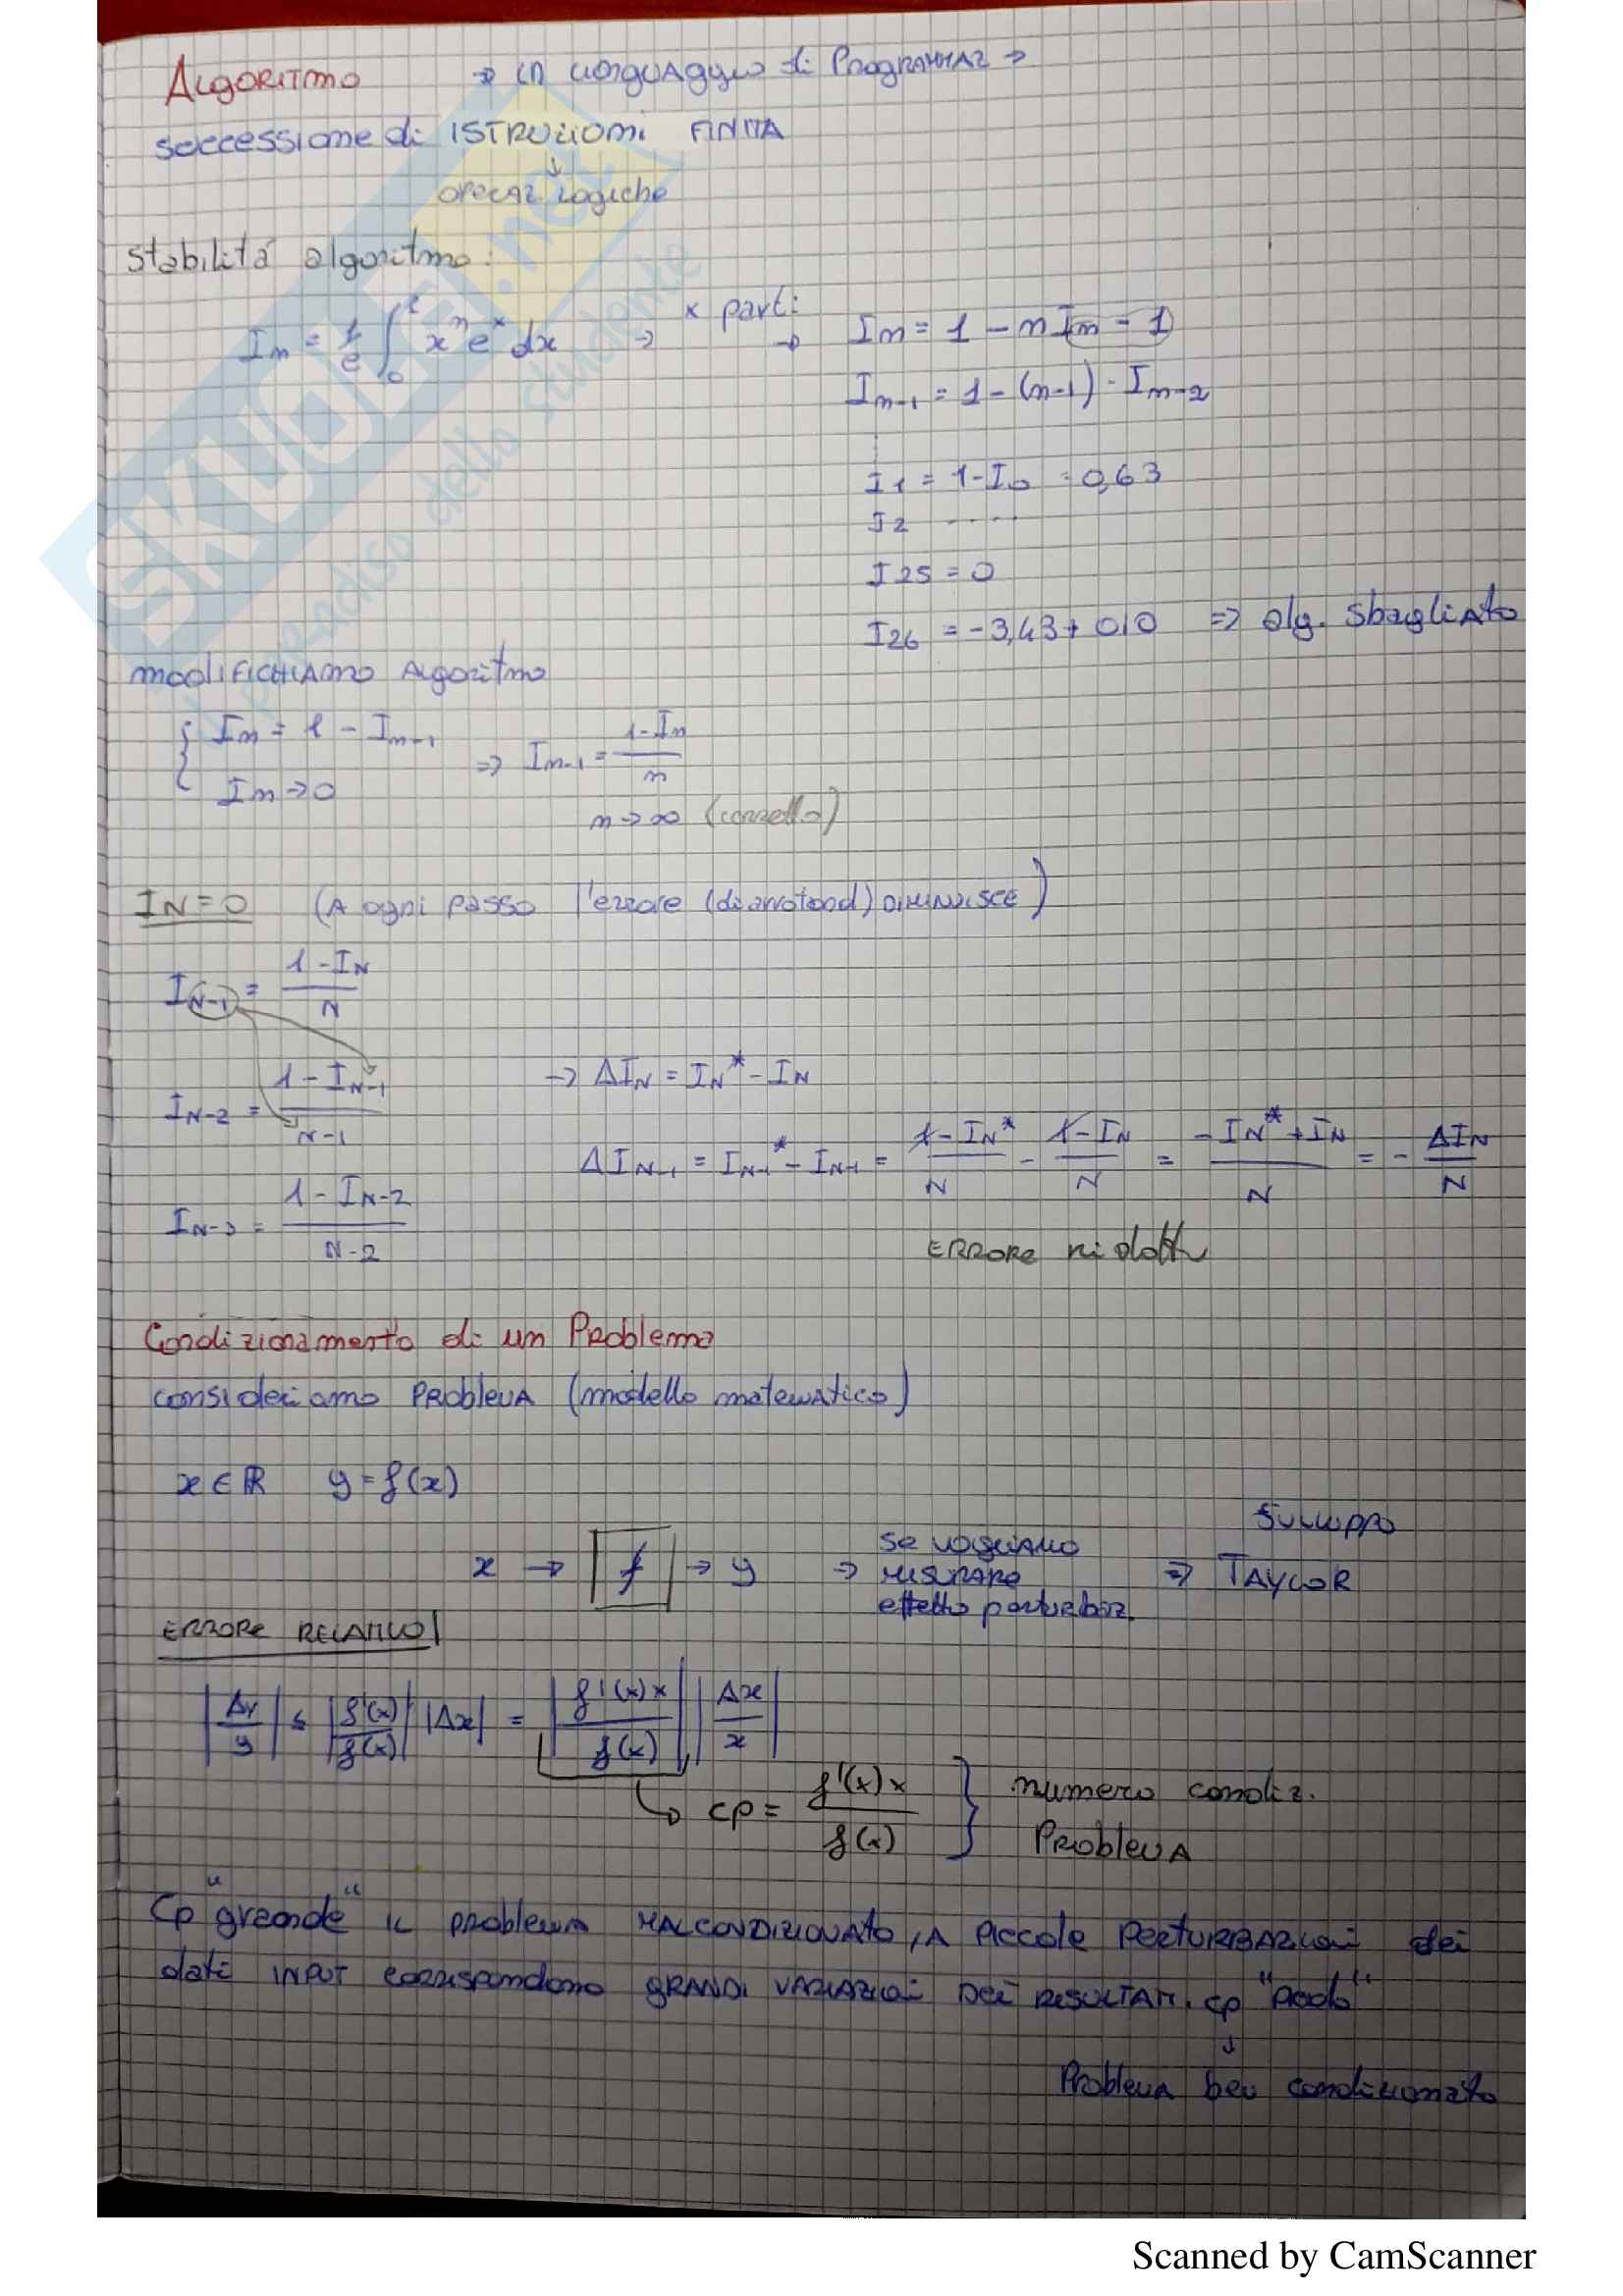 Algoritmo → in linguaggio di Programmaz →
successione di ISTRUZIONI FINITA
↓
operaz. logiche
Stabilità algoritmo:
In = 1/e ∫₀¹ xⁿ eˣ dx → x parti → In = 1 - n In-1
In-1 = 1 - (n-1) · In-2
⋮
I1 = 1 - I0 = 0,63
I2 .....
I25 = 0
I26 = -3,43 + 010 ⇒ alg. sbagliato
modifichiamo Algoritmo
{ In = 1 - In-1
In → 0
⇒ In-1 = (1 - In)/n
n → ∞
IN = 0 (A ogni passo l'errore DIMINUISCE)
IN-1 = (1 - IN)/N
IN-2 = (1 - IN-1)/(N-1)
→ ΔIN = IN* - IN
ΔIN-1 = IN-1* - IN-1 = (1 - IN*)/N - (1 - IN)/N = (-IN* + IN)/N = - ΔIN/N
IN-3 = (1 - IN-2)/(N-2)
ERRORE ridotto
Condizionamento di un Problema
consideriamo PROBLEMA (modello matematico)
x ∈ ℝ y = f(x)
x → [f] → y ⇒ se vogliamo misurare effetto perturbaz. ⇒ Sviluppo TAYLOR
ERRORE RELATIVO
|Δy/y| ≤ |f'(x)/f(x)| |Δx| = |f'(x)x/f(x)| |Δx/x|
↳ cp = f'(x)x/f(x) } numero condiz. Problema
Cp "grande" il problema MALCONDIZIONATO, A PICCOLE PERTURBAZIONI dei
dati INPUT corrispondono GRANDI VARIAZIONI DEI RISULTATI. cp "piccolo"
↓
Problema ben condizionato
SKUOLA.net
il paradiso dello studente
Scanned by CamScanner